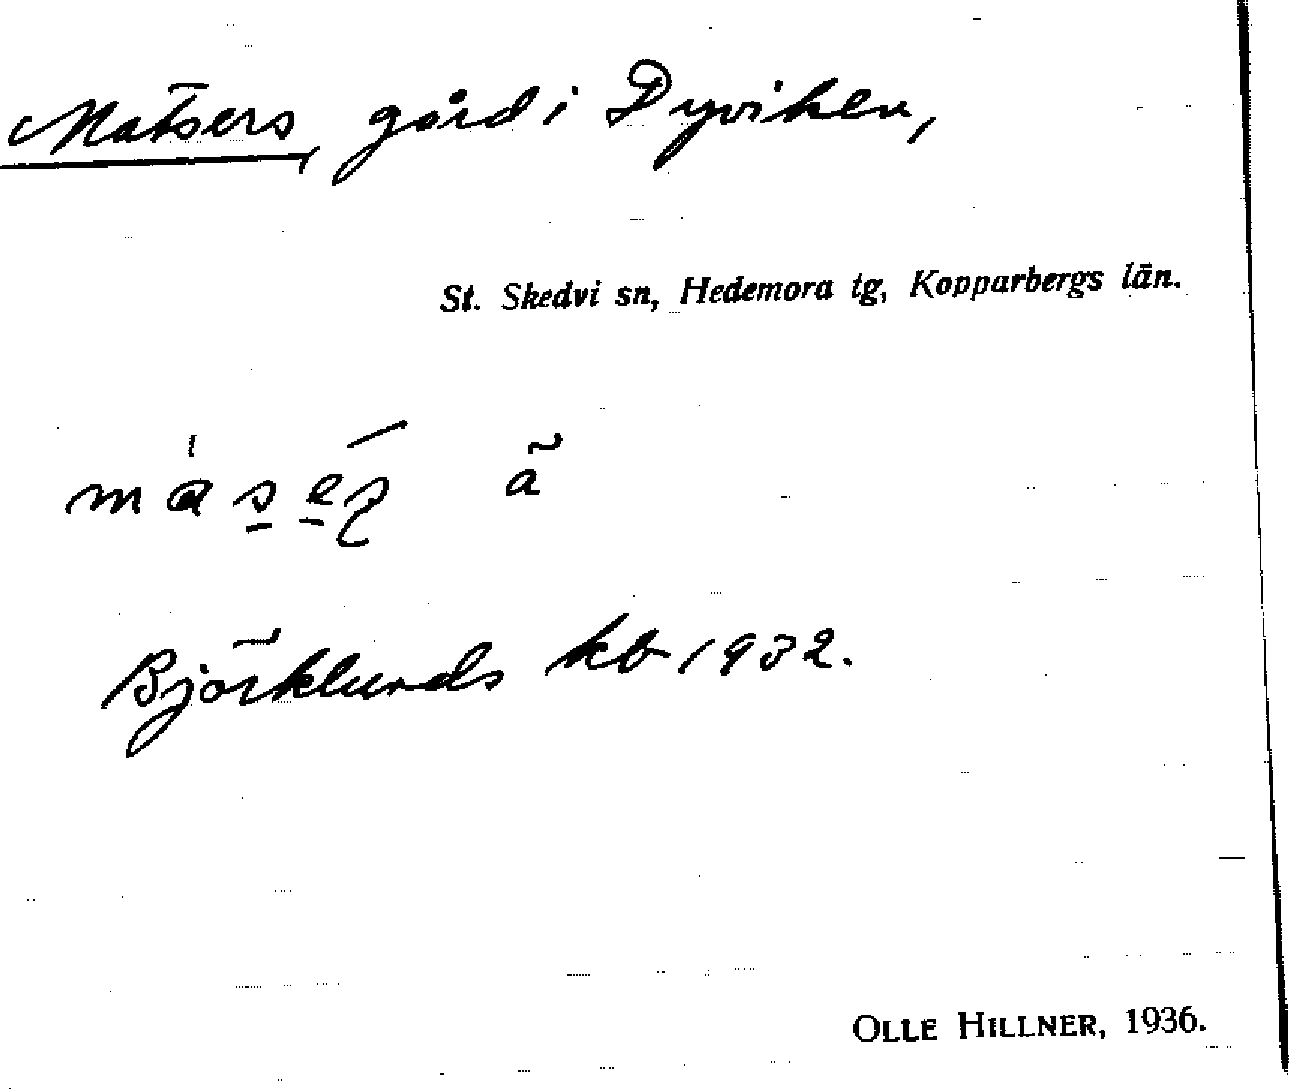 Matsers, gård i Dyviken,
St. Skedvi sn, Hedemora tg, Kopparbergs län.
ã
Björklunds kb 1932.
OLLE HILLNER, 1936.